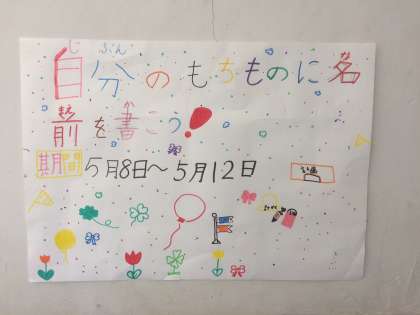 じ ぶん な
自分のもちものに名
まえ
前を書こう!
期間 5月8日〜5月12日